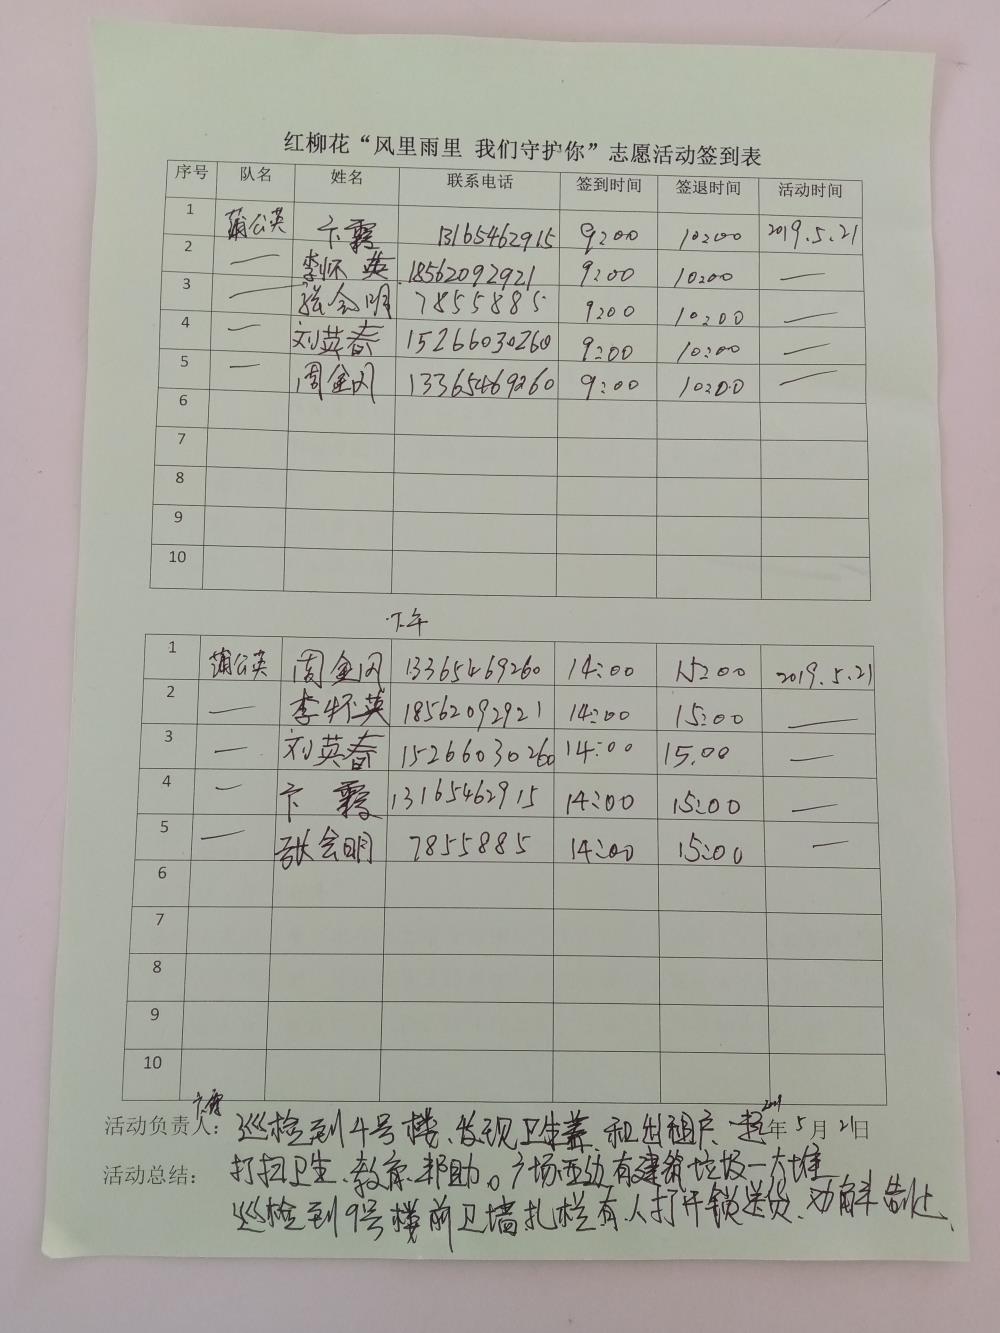 红柳花“风里雨里 我们守护你”志愿活动签到表
序号 队名 姓名 联系电话 签到时间 签退时间 活动时间
1 蒲公英 卞霞 13165462915 9:00 10:00 2019.5.21
2 — 李怀英 18562092921 9:00 10:00 —
3 — 张会明 7855885 9:00 10:00 —
4 — 刘英春 15266030260 9:00 10:00 —
5 — 周金闪 13365469260 9:00 10:00 —
6
7
8
9
10
下午
1 蒲公英 周金闪 13365469260 14:00 15:00 2019.5.21
2 — 李怀英 18562092921 14:00 15:00 —
3 — 刘英春 15266030260 14:00 15.00 —
4 — 卞霞 13165462915 14:00 15:00 —
5 — 张会明 7855885 14:00 15:00 —
6
7
8
9
10
活动负责人: 卞霞 2019年5月21日
巡检到4号楼、发现卫生差、和出租户一起
活动总结: 打扫卫生、教育、帮助。广场西边有建筑垃圾一大堆
巡检到9号楼前卫墙扎栏有人打开锁送货、劝解制止、